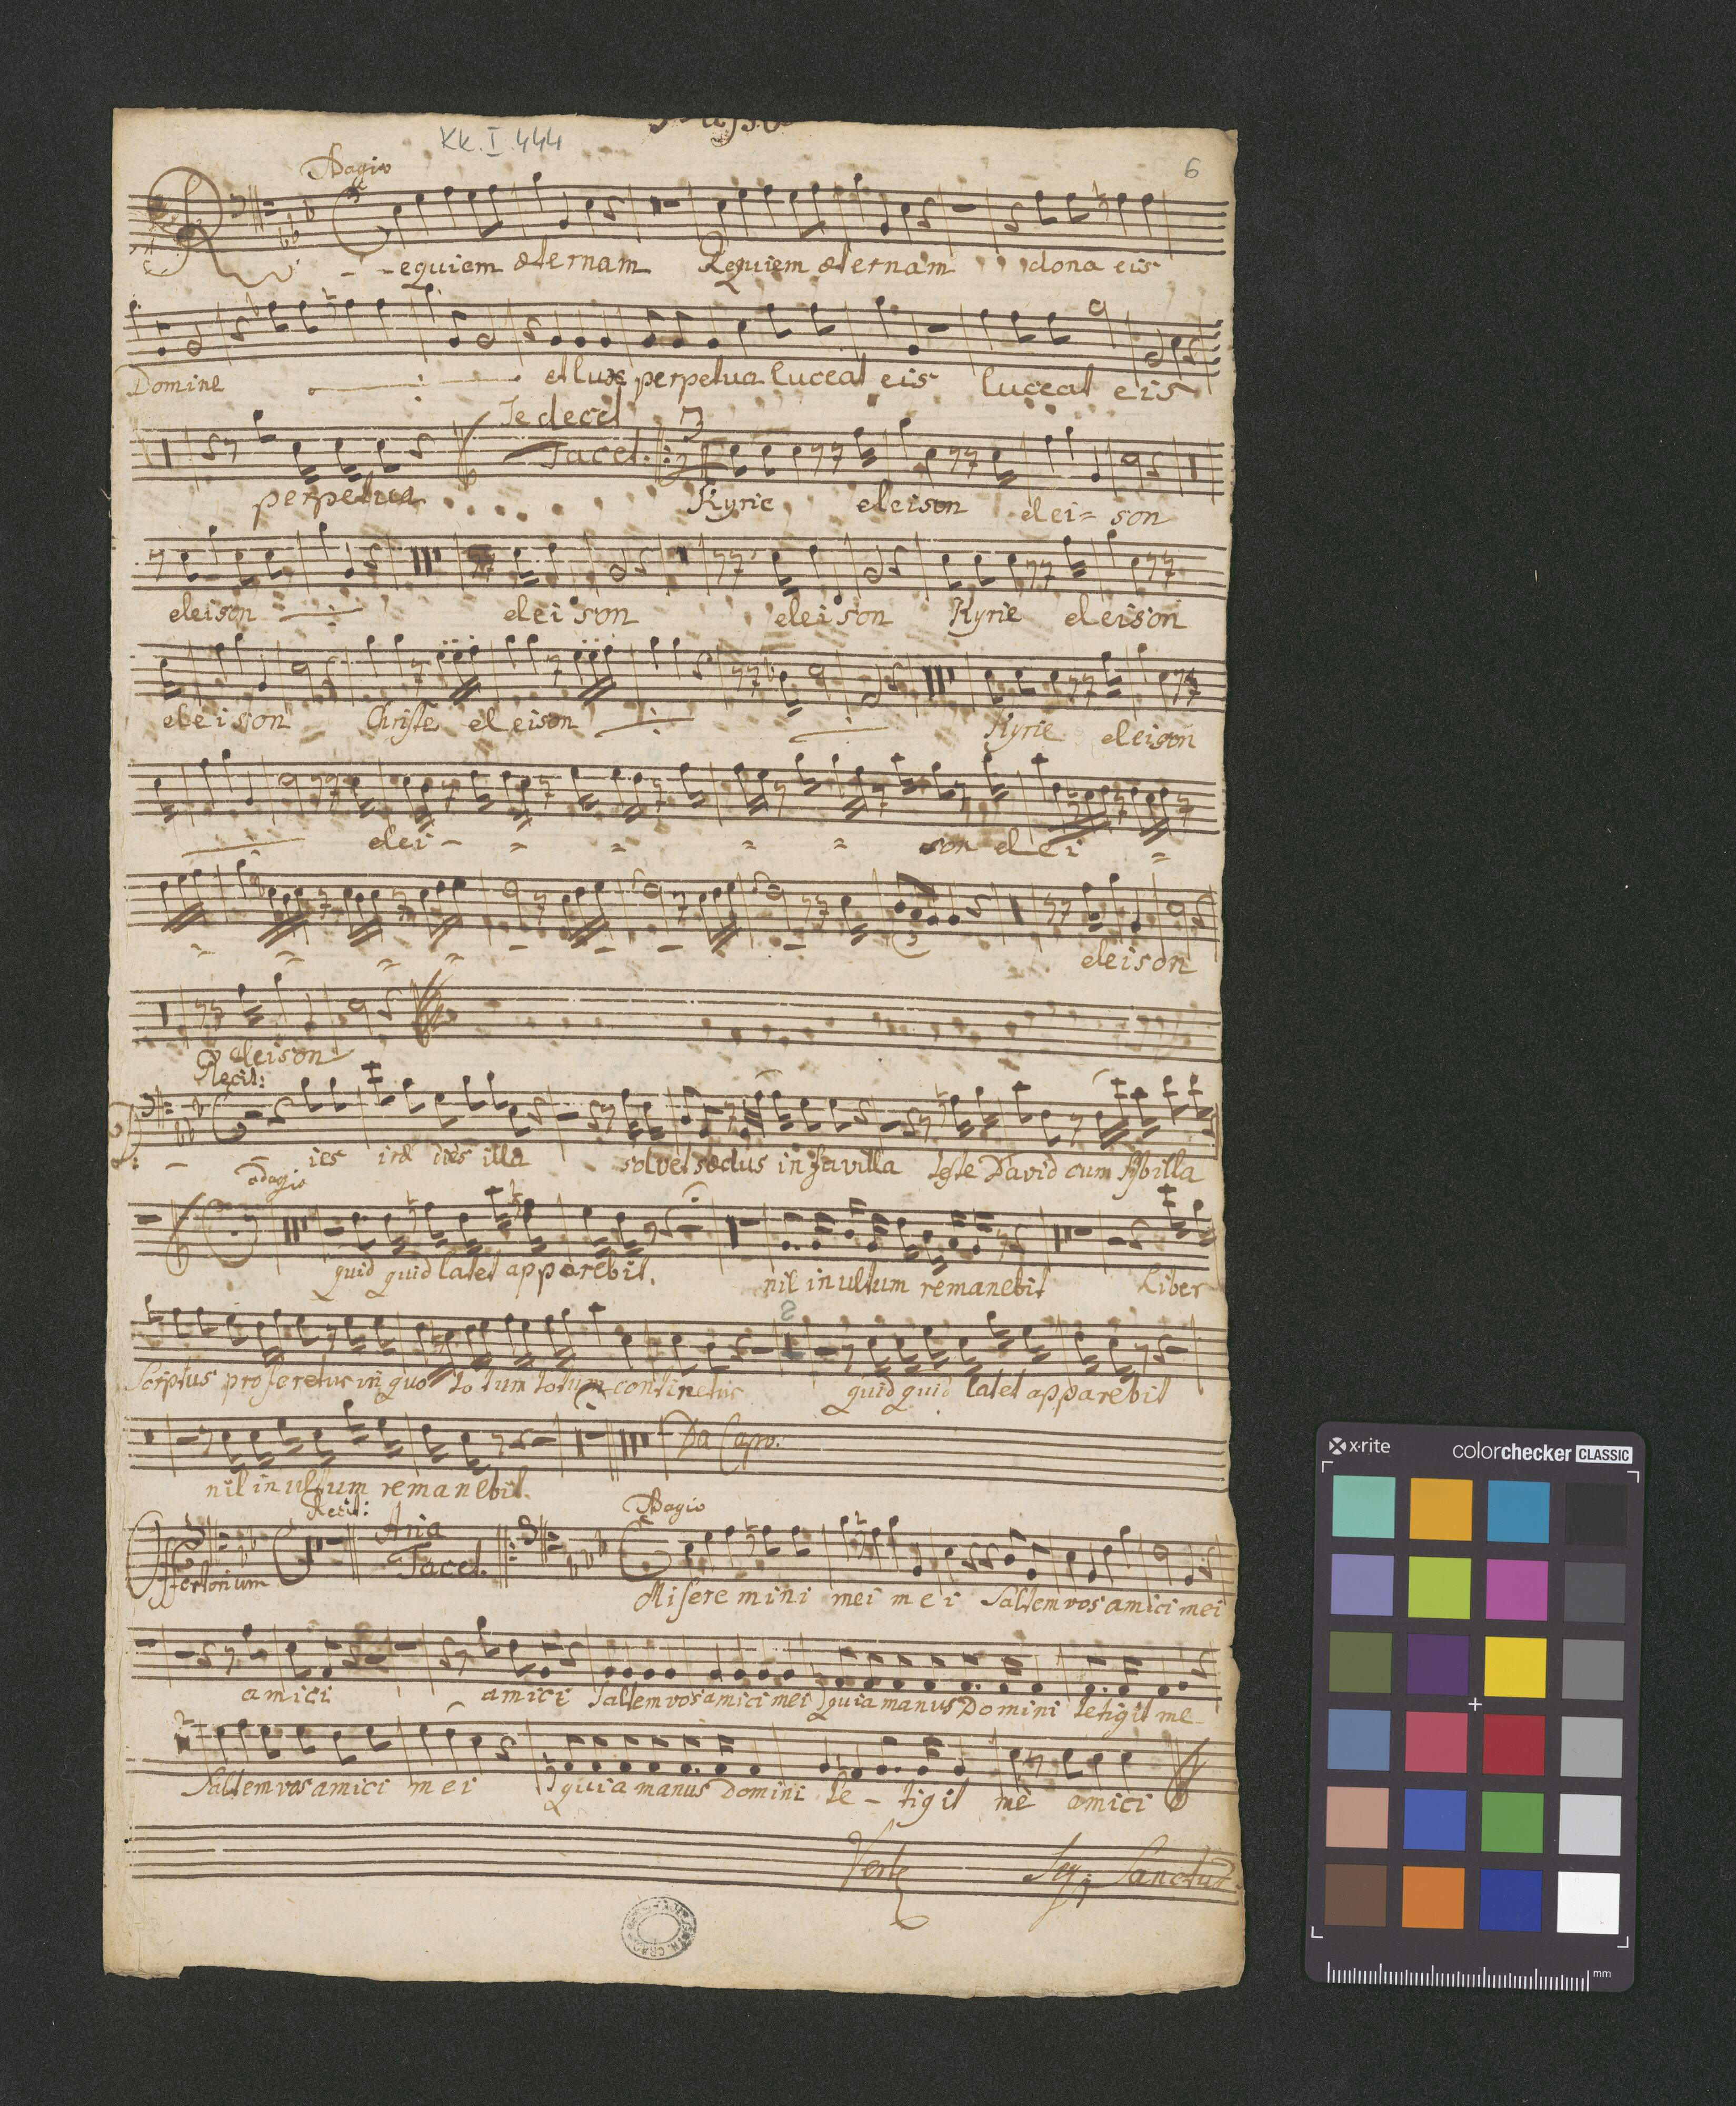 Kk. I. 444
6
Adagio
Requiem æternam Requiem æternam dona eis
Domine et lux perpetua luceat eis luceat eis
Te decet
perpetua Tacet. 3 Kyrie eleison elei= son
eleison eleison eleison Kyrie eleison
eleison Christe eleison Kyrie eleison
elei - = = = = son elei =
eleison
eleison
Recit:
Dies iræ dies illa solvet sæclus in favilla teste David cum sÿbilla
adagio
quid quid latet apparebit. nil inultum remanebit Liber
2
Scriptus proferetur in quo totum totum continetur quid quid latet apparebit
Da Capo.
nil in ultum remanebit.
Recit: Aria Adagio
Offertorium Tacet. Miseremini mei mei Saltem vos amici mei
amici amici Saltem vos amici mei quia manus Domini tetigit me
2
Saltem vos amici mei quia manus Domini te - tigit me amici
Verte Seq; Sanctus
x-rite colorchecker CLASSIC
mm